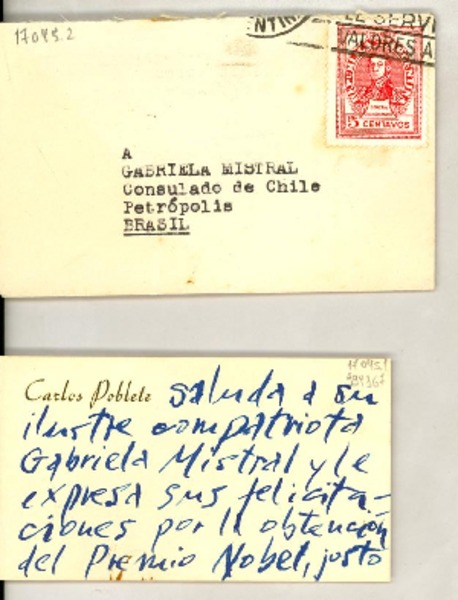 17045.2
LE SERVI
VALORES A
5 CENTAVOS
A
GABRIELA MISTRAL
Consulado de Chile
Petrópolis
BRASIL
17045.1
Carlos Poblete saluda a su
ilustre compatriota
Gabriela Mistral y le
expresa sus felicita-
ciones por la obtención
del Premio Nobel, justo